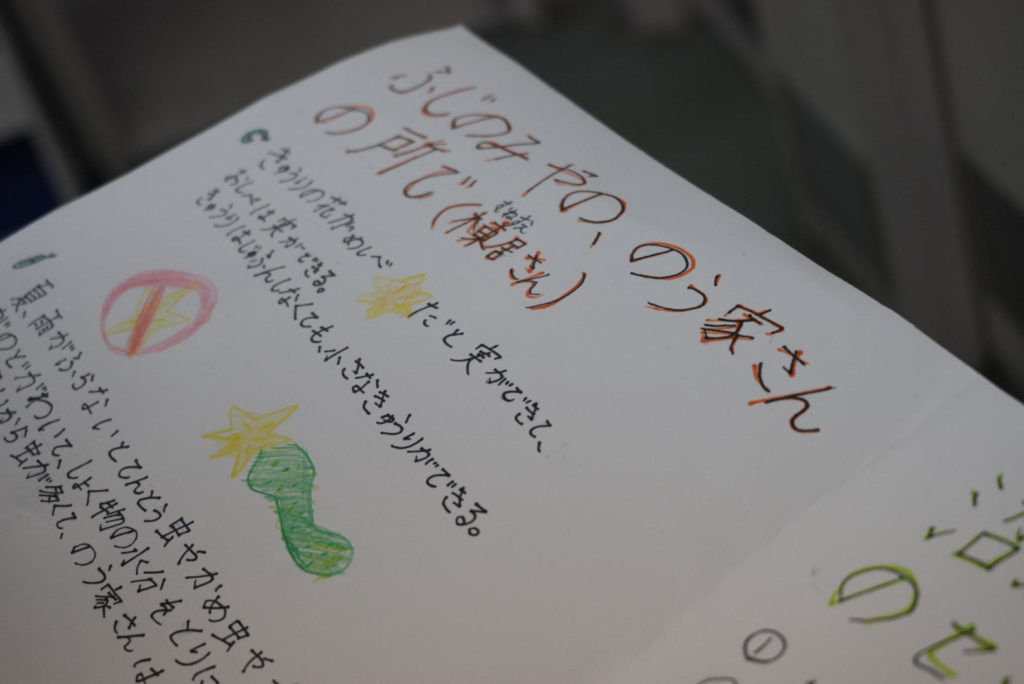 ふじのみやの、のう家さん
の所で(棟居さん)
きゅうりの花がめしべ
だと実ができて、
おしべは実ができる。
きゅうりはじゅふんしなくても、小さなきゅうりができる。
夏、雨がふらないとてんとう虫やかめ虫や
がのどがわいて、しょく物の水分をとりに
から虫が多くて、のう家さんは
のセ
①